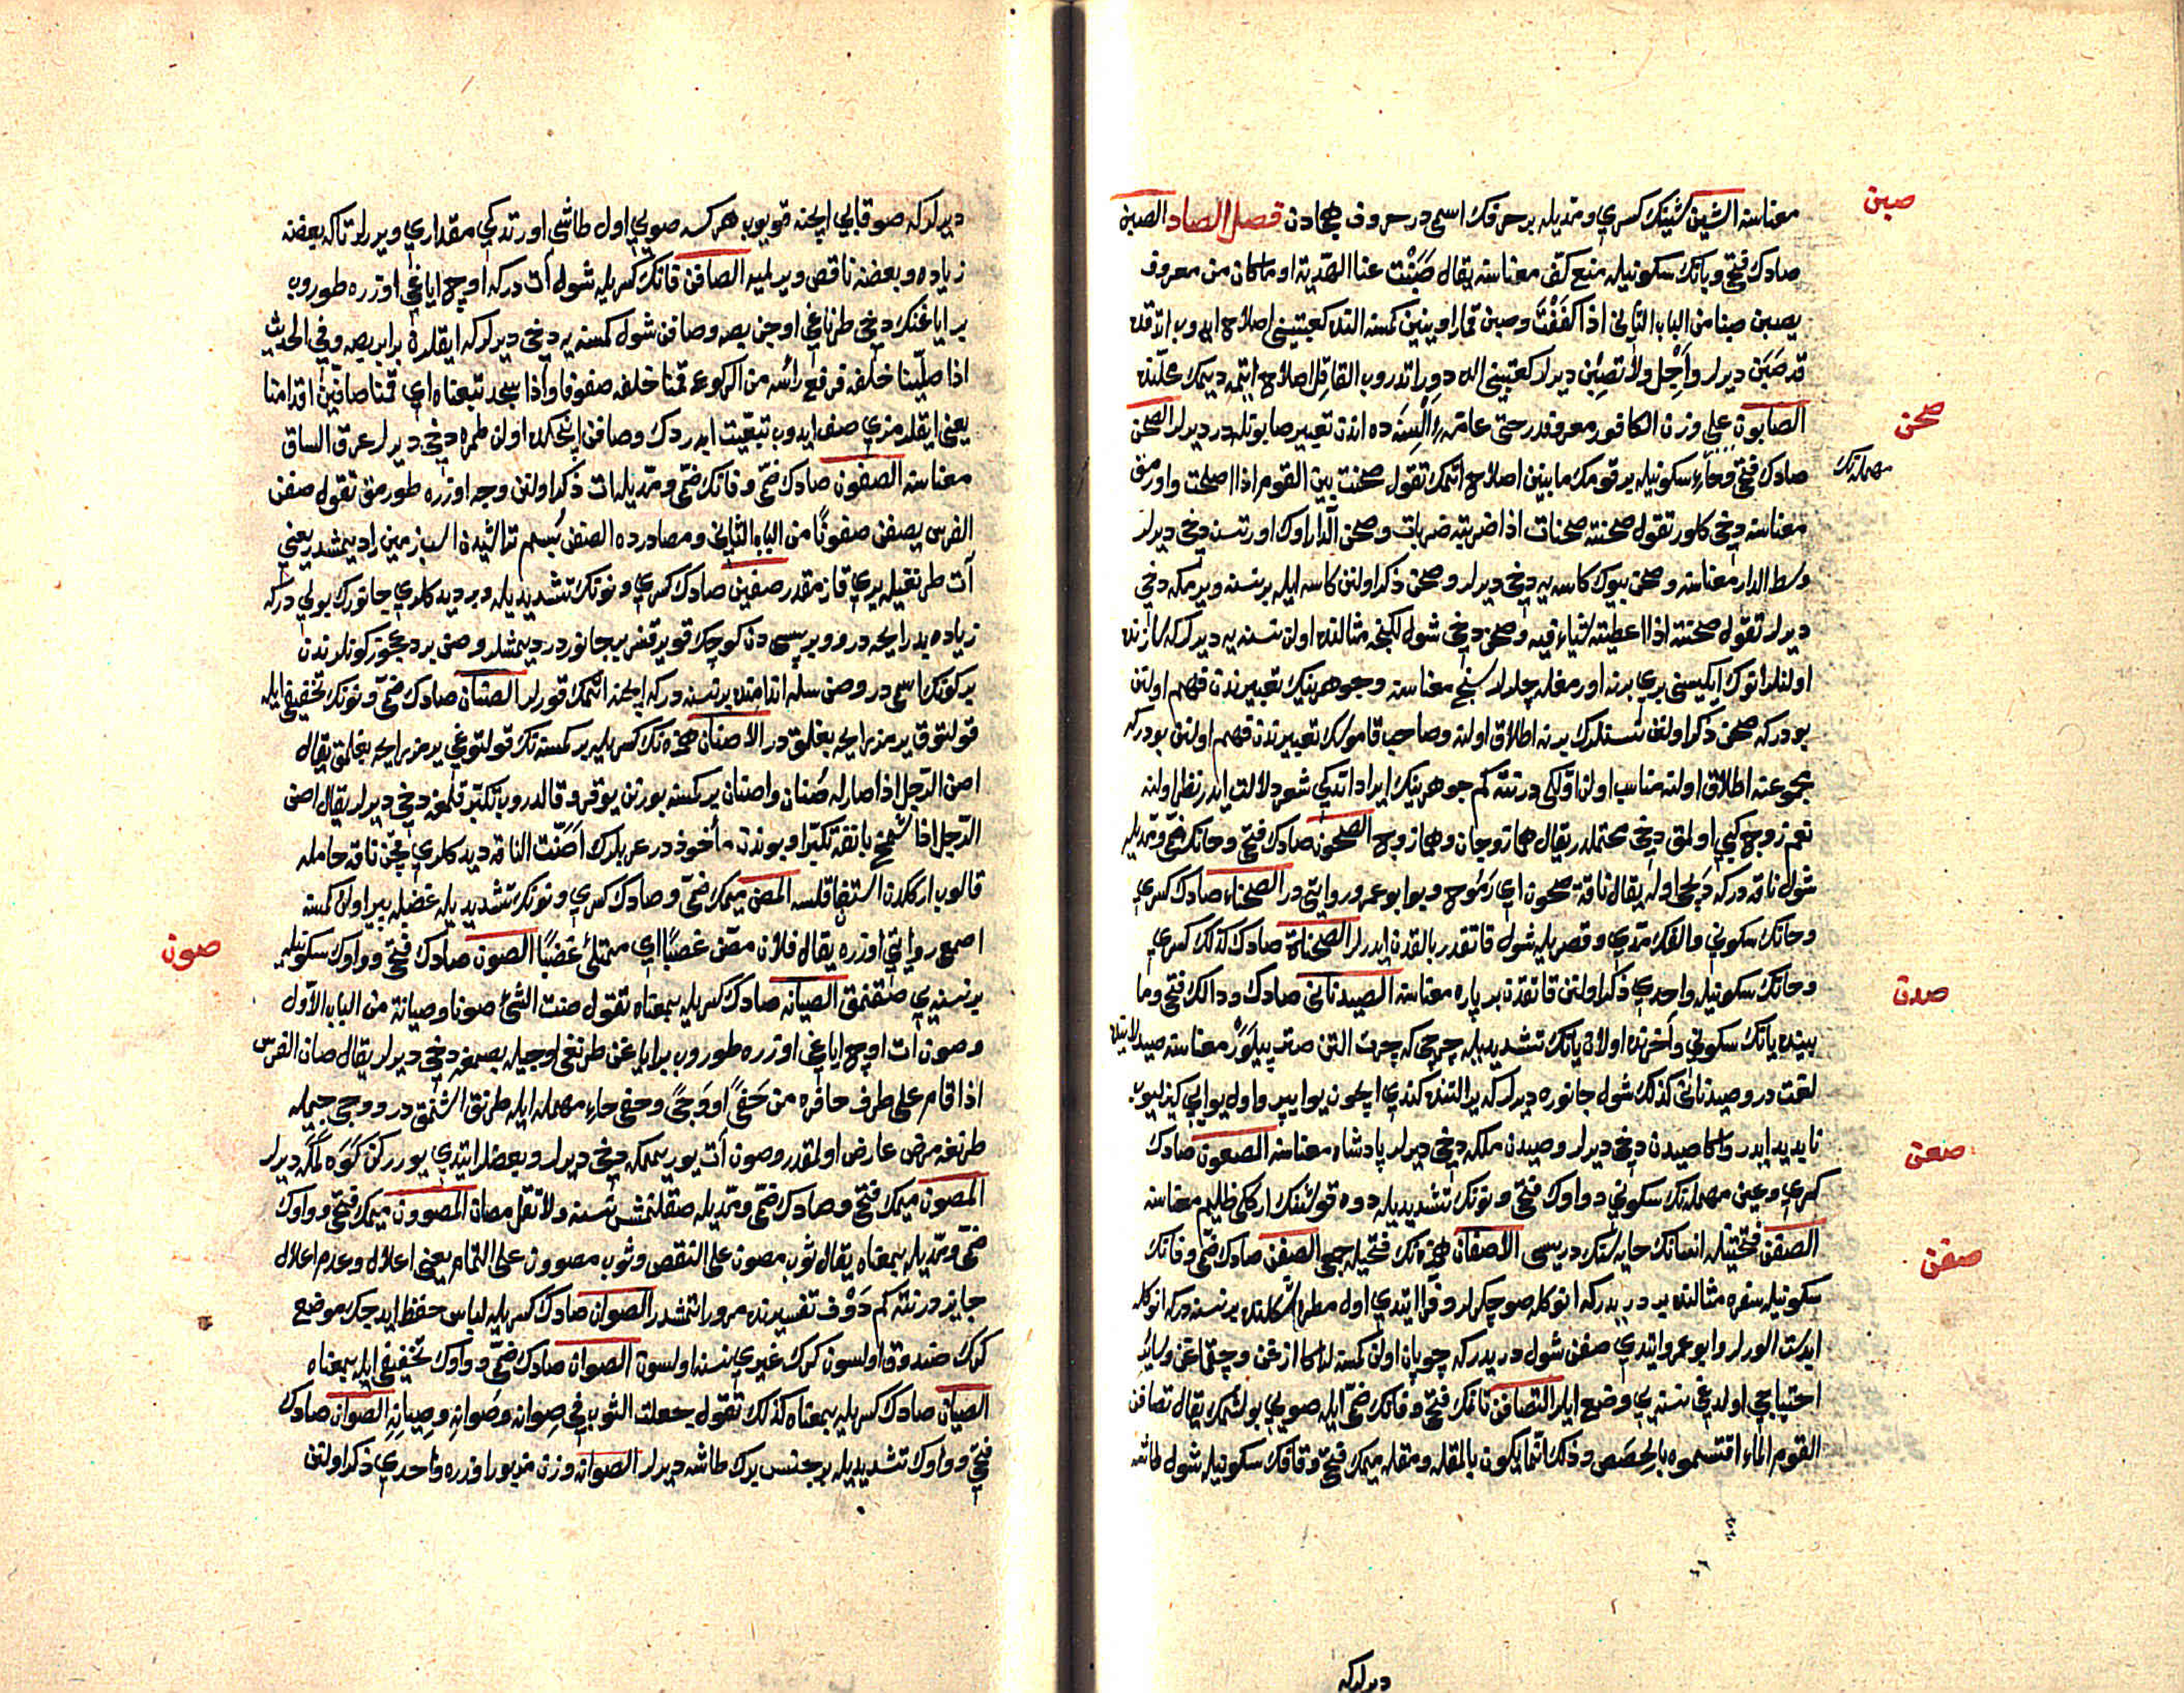 صبن
معناسنه الشین شینك كسری و مدیله بر حرفك اسمی در حروف هجادن فصل الصاد الصبن
صادك فتحی و بانك سكونیله منع كف معناسنه یقال صَبَنْت عنا الهدیة او ما كان من معروف
یصبن صبنا من الباب الثانی اذا كففت وصبن قمار اوینین كمسنه النده كعبتینی اصلاح ایدوب اتدقده
قد صبن دیرلر واجل ولا تصبن دیرلر كعبتینی الده دوراتدروب القا قل اصلاح ایتمه دیمك محلنده
الصابون علی وزن الكافور معروفدر حتی عامه السنه ده اندن تعبیر صابونله در دیرلر الصحن
صحن
صادك فتحی و حاء سكونیله بر قومك مابینین اصلاح اتمك تقول صحنت بین القوم اذا اصلحت و اورمق
مهمله نك
معناسنه دخی كلور تقول صحنته صحنات اذا ضربته ضربات وصحن الدار اوك اورتسنه دخی دیرلر
وسط الدار معناسنه وصحن بیوك كاسه یه دخی دیرلر وصحن ذكر اولنن كاسه ایله بر نسنه ویرمكه دخی
دیرلر تقول صحنته اذا اعطیته شیاء فیه وصحن دخی شول لكنجه مثالنده اولن نسنه یه دیرلر كه
اولنلر انوك ایكیسنی بری برنه اورمغله چلرلر سنج معناسنه و جوهرینك تعبیرندن فهم اولنن
بودر كه صحن ذكر اولنن نسنه لرك برنه اطلاق اولنه وصاحب قاموسك تعبیرندن فهم اولنن بودر كه
مجموعنه اطلاق اولنه مناسب اولن اولكی در نته كم جوهرینك ایراد اتدكی شعر دلالت ایدر نظر اولنه
نعم زوج كبی اولمق دخی محتملدر یقال هما زوجان وهما زوج الصحون صادك فتحی و حانك ضمی و مدیله
شول ناقه در كه دپجی اوله یقال ناقة صحون ای رموح و بو ابو عمرو روایتی در الصحناء صادك كسری
و حانك سكونی و الفك مدی و قصریله شول قاتقدر بالقدن ایدرلر الصحناة صادك كذلك كسری
و حانك سكونیله واحدی ذكر اولنن قاتقدن بر پاره معناسنه الصیدنانی صادك و دالك فتحی و ما
صدن
بیننده یانك سكونی و آخرنده اولان یانك تشدیدیله چرچی كه چرك التن صتیپ یپلور معناسنه صیدلانیده
لغت در و صیدنانی كذلك شول جانوره دیرلر كه یر التنده كندی ایچون یوا یپر و اول یوایی كیزلیوب
ناپدید ایدر واكا صیدن دخی دیرلر و صیدن ملكه دخی دیرلر پادشاه معناسنه الصعون صادك
صعن
كسری و عین مهمله نك سكونی و واوك فتحی و نونك تشدیدیله دوه قوشنك ارككی ظلیم معناسنه
الصفن فتحتیله انسانك خایه سنك دریسی الاصفان همزه نك فتحیله جمعی الصفن صادك ضمی و فانك
صفن
سكونیله سفره مثالنده بر دریدر كه انوكله صو چكرلر و فرا ایتدی اول مطره شكلنده بر نسنه در كه انوكله
ابدست الورلر و ابو عمرو ایتدی صفن شول دریدر كه چوپان اولن كمسنه لر اكا ازغن و چقماغن و سائر
احتیاجی اولدغی نسنه یی وضع ایلر التصافن تانك فتحی و فانك ضمی ایله صویی بولشمك یقال تصافن
القوم الماء اقتسموه بالحصص و ذلك انما یكون بالمقله و مقله میمك فتحی و قافك سكونیله شول طاشه
دیرلر كه
دیرلر كه صو قابی ایچنه قویوب هر كسه صویی اول طاشی اورتدكی مقداری ویررلر تا كه بعضنه
زیاده و بعضنه ناقص ویرلمیه الصافن فانك كسریله شول آت در كه اوچ ایاغی اوزره طوروب
بر ایاغنك دخی طرناغی اوجن بصه و صافن شول كمسنه یه دخی دیرلر كه ایقلرن برابر بصه و فی الحدیث
اذا صلینا خلفه فرفع رأسه من الركوع قمنا خلفه صفوفا واذا سجد تبعناه ای قمنا صافین اقدامنا
یعنی ایقلرمزی صف ایدوب تبعیت ایدردك و صافن اینجكده اولن طمره دخی دیرلر عرق الساق
معناسنه الصفون صادك ضمی و فانك ضمی و مدیله ات ذكر اولنن وجه اوزره طورمق تقول صفن
الفرس یصفن صفونًا من الباب الثانی و مصادرده الصفن بسم تراشیدن اسب زمین را دیمشدر یعنی
آت طرنغیله یری قازمقدر صفین صادك كسری و نونك تشدیدیله و بر دیدكلری جانورك بولی در كه
زیاده بد رایحه در و وبر پسی دن كوچك قویرقسز بر جانوردر دیمشلر و صن برد عجوز كونلرندن
بر كونك اسمی در و صن سله اندامنده بر نسنه در كه ایچنه اتمك قورلر الصنان صادك ضمی و نونك تخفیفی ایله
قولتوق یرمز رایحه بغلمق در الاصنان همزه نك كسریله بر كمسنه نك قولتوغی یرمز رایحه بغلمق یقال
اصن الرجل اذا صار له صنان و اصنان بر كمسنه بورنن یوقرو قالدروب تكبر قلمغه دخی دیرلر یقال اصن
الرجل اذا شمخ بانفه تكبرا و بوندن مأخوذدر عربلرك اَصَنّت الناقة دیدكلری قچن ناقه حامله
قالوب اركدن استنكاف قلسه المصن میمك ضمی و صادك كسری و نونك تشدیدیله غضبله پر اولن كمسنه
اصمعی روایتی اوزره یقال فلان مصن غضبًا ای ممتلئ غضبًا الصون صادك فتحی و واوك سكونیله
صون
بر نسنه یی صقنمق الصیانه صادك كسریله بمعناه تقول صنت الشئ صونا و صیانة من الباب الاول
و صون آت اوچ ایاغی اوزره طوروب بر ایاغن طرنغی اوجیله بصمغه دخی دیرلر یقال صان الفرس
اذا قام علی طرف حافره من حَفًی او وَجًی و حفی حاء مهمله ایله طرنق اشنمق در و وجی جیمله
طرنغه مرض عارض اولمقدر و صون آت یوریمكه دخی دیرلر و بعضلر ایتدی یوررکن
المصون میمك فتحی و صادك ضمی و مدیله صقلنمش نسنه ولا تقل مصان المصوون میمك فتحی و واوك
ضمی و مدیله بمعناه یقال ثوب مصون علی النقص و ثوب مصوون علی التمام یعنی اعلال و عدم اعلال
جایزدر نته كم دَوْف تفسیرنده مرور اتمشدر الصوان صادك كسریله لباس حفظ ایدجك موضع
كرك صندوق اولسون كرك غیری نسنه اولسون الصوان صادك ضمی و واوك تخفیفی ایله بمعناه
الصیان صادك كسریله بمعناه كذلك تقول جعلت الثوب فی صِوانه وصُوانه وصِیانه الصوان صادك
فتحی و واوك تشدیدیله بر جنس برك طاشه دیرلر الصوانه وزن مزبور اوزره واحدی ذكر اولنن